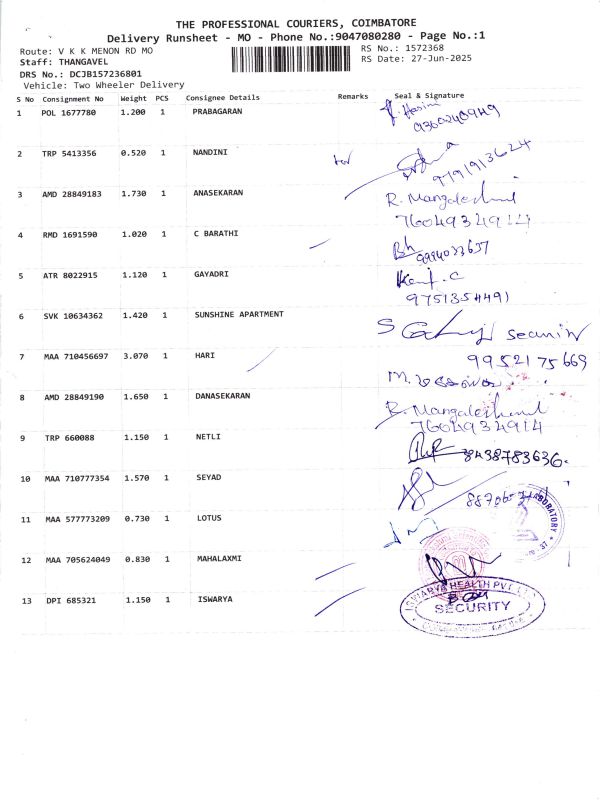 THE PROFESSIONAL COURIERS, COIMBATORE
Delivery Runsheet - MO - Phone No.:9047080280 - Page No.:1
Route: V K K MENON RD MO
RS No.: 1572368
Staff: THANGAVEL
RS Date: 27-Jun-2025
DRS No.: DCJB157236801
Vehicle: Two Wheeler Delivery
S No Consignment No Weight PCS Consignee Details Remarks Seal & Signature
1 POL 1677780 1.200 1 PRABAGARAN
2 TRP 5413356 0.520 1 NANDINI
9791913624
3 AMD 28849183 1.730 1 ANASEKARAN R. Mangaleshwari
7604934914
4 RMD 1691590 1.020 1 C BARATHI
9994033657
5 ATR 8022915 1.120 1 GAYADRI
9751354491
6 SVK 10634362 1.420 1 SUNSHINE APARTMENT
9952175669
7 MAA 710456697 3.070 1 HARI
8 AMD 28849190 1.650 1 DANASEKARAN R. Mangaleshwari
7604934914
9 TRP 660088 1.150 1 NETLI 8438783636.
10 MAA 710777354 1.570 1 SEYAD
11 MAA 577773209 0.730 1 LOTUS
LABORATORY
12 MAA 705624049 0.830 1 MAHALAXMI
13 DPI 685321 1.150 1 ISWARYA
ISWARYA HEALTH PVT LTD
SECURITY